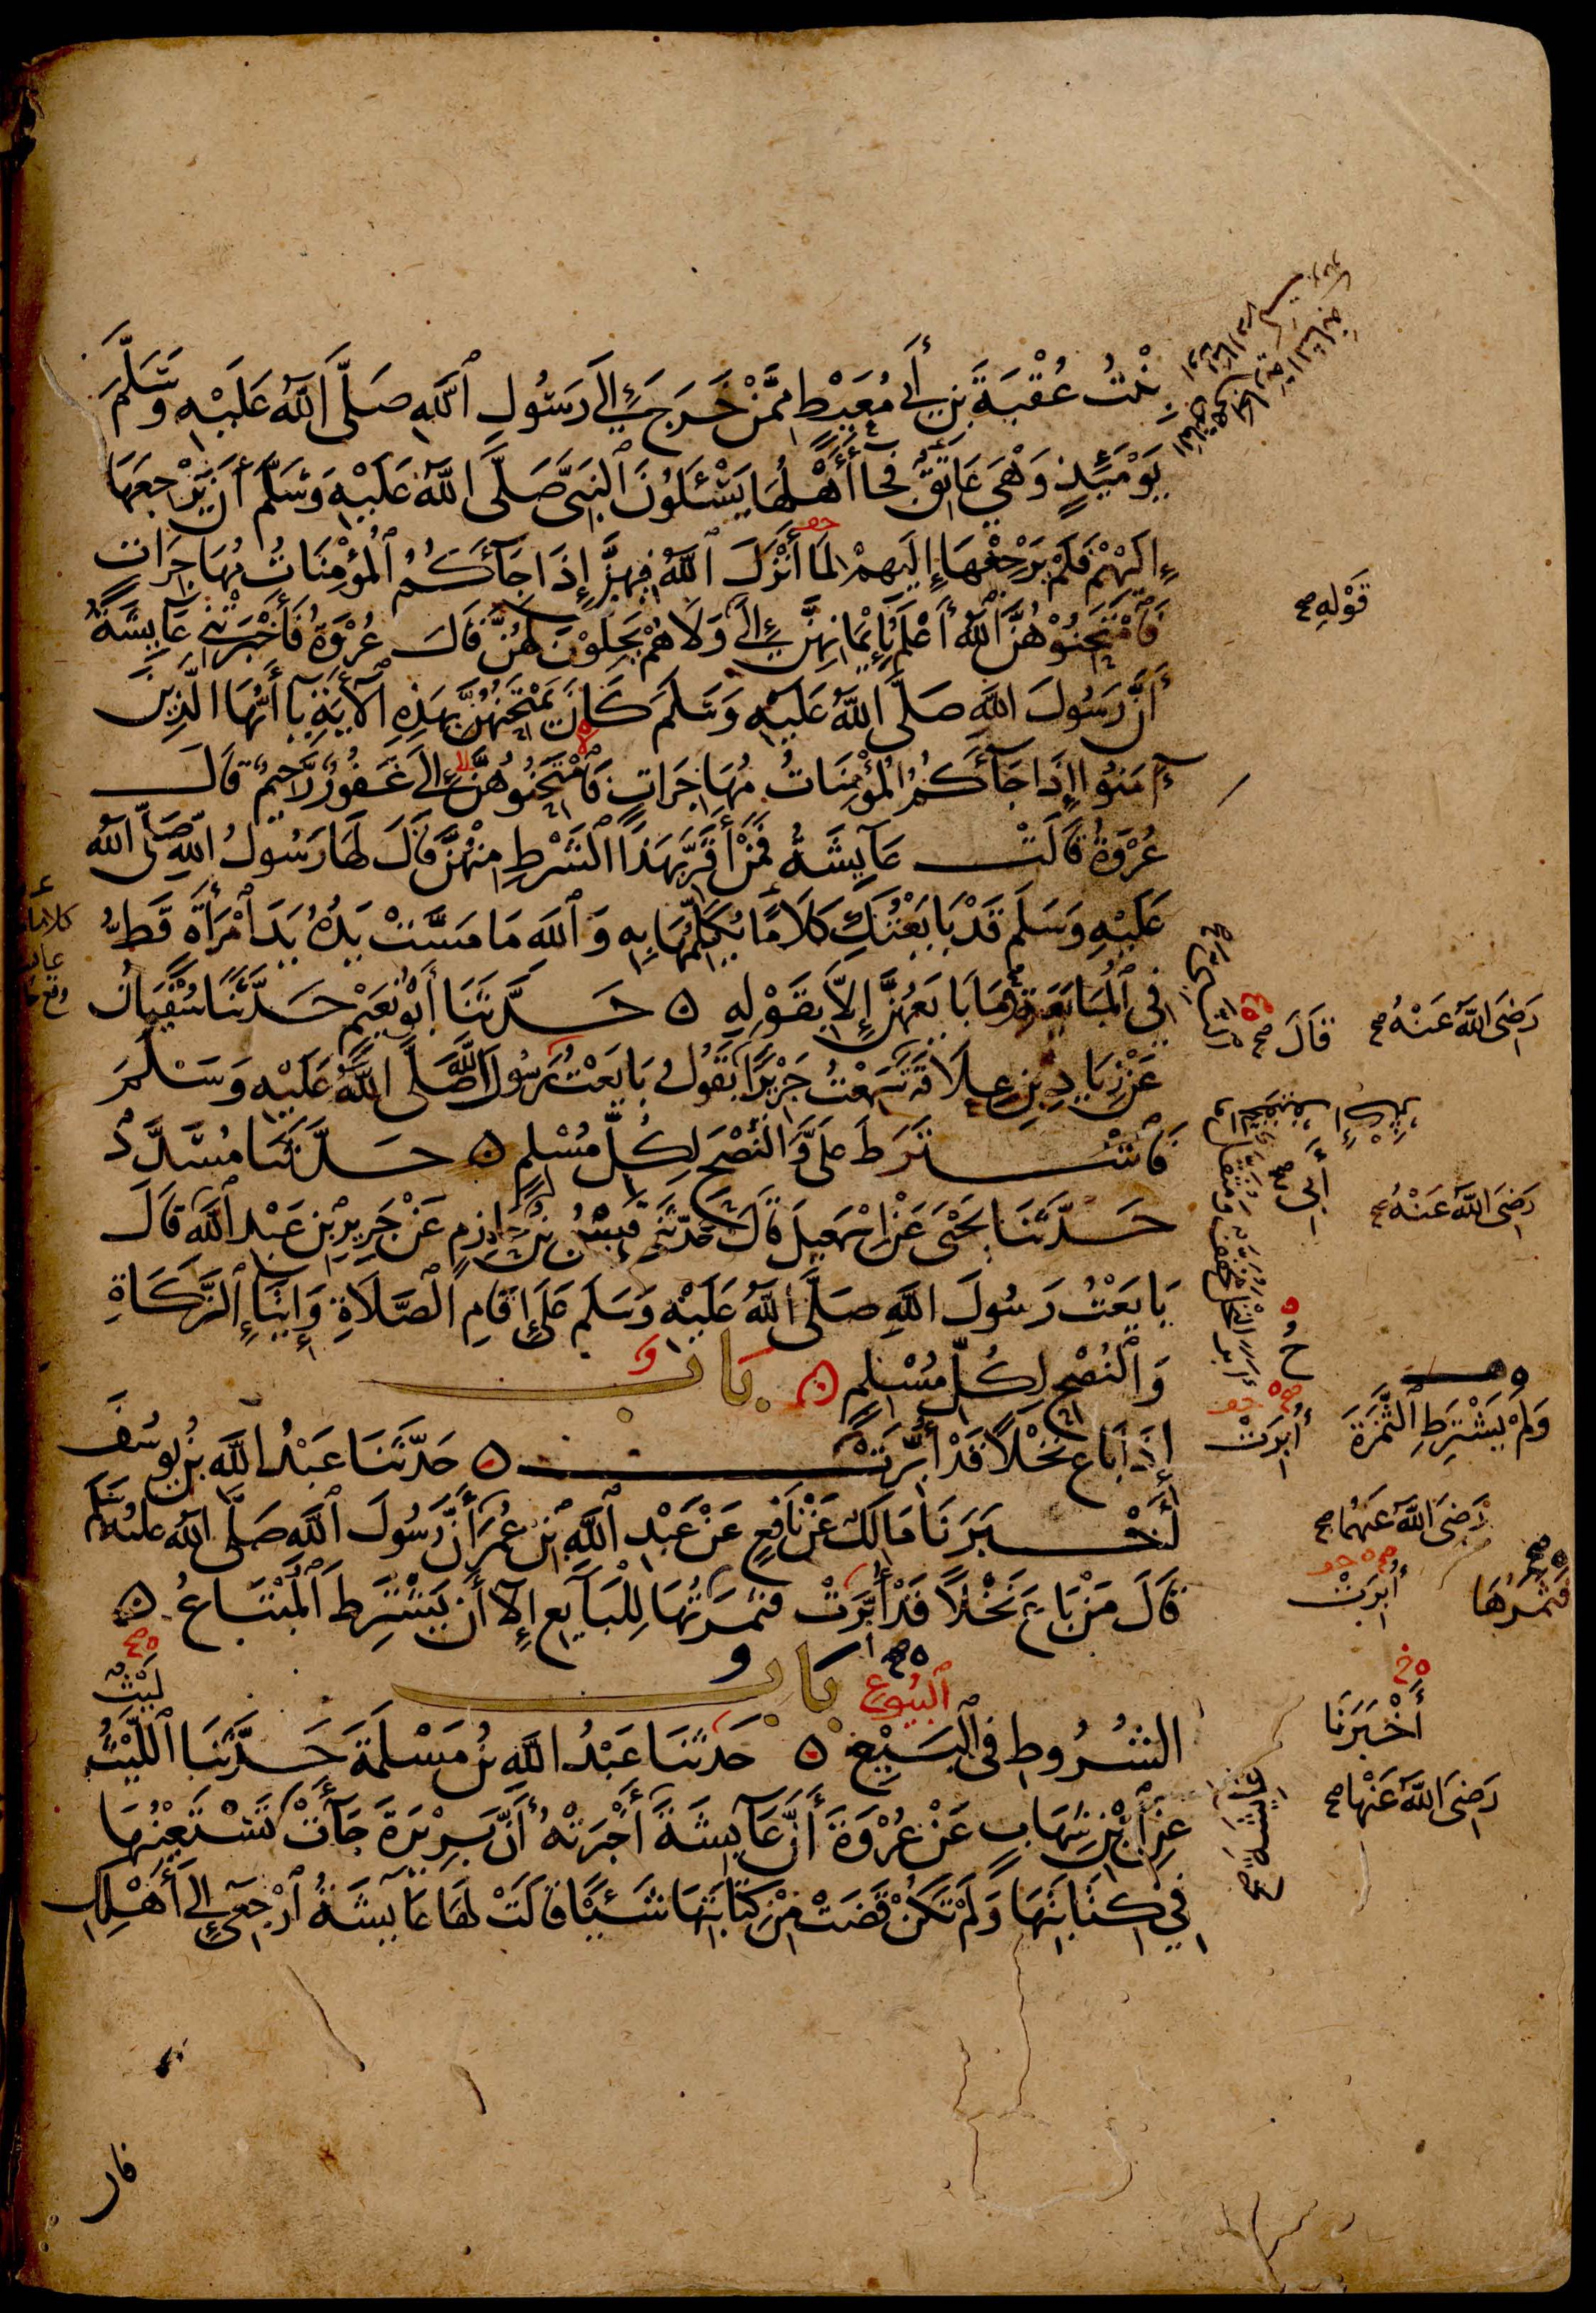 بِنْتُ عُقْبَةَ بْنِ أَبِي مُعَيْطٍ مِمَّنْ خَرَجَ إِلَى رَسُولِ ٱللَّهِ صَلَّى ٱللَّهُ عَلَيْهِ وَسَلَّمَ
يَوْمَئِذٍ وَهْيَ عَاتِقٌ فَجَاءَ أَهْلُهَا يَسْئَلُونَ ٱلنَّبِيَّ صَلَّى ٱللَّهُ عَلَيْهِ وَسَلَّمَ أَنْ يَرْجِعَهَا
إِلَيْهِمْ فَلَمْ يَرْجِعْهَا إِلَيْهِمْ لِمَا أَنْزَلَ ٱللَّهُ فِيهِنَّ إِذَا جَآءَكُمُ ٱلْمُؤْمِنَاتُ مُهَاجِرَاتٍ
قَوْلِهِ صح
فَٱمْتَحِنُوهُنَّ ٱللَّهُ أَعْلَمُ بِإِيمَانِهِنَّ إِلَى وَلَا هُمْ يَحِلُّونَ لَهُنَّ قَالَ عُرْوَةُ فَأَخْبَرَتْنِي عَآئِشَةُ
أَنَّ رَسُولَ اللَّهِ صَلَّى اللَّهُ عَلَيْهِ وَسَلَّمَ كَانَ يَمْتَحِنُهُنَّ بِهَذِهِ ٱلْآيَةِ يَآ أَيُّهَا الَّذِينَ
آمَنُوا إِذَا جَآءَكُمُ ٱلْمُؤْمِنَاتُ مُهَاجِرَاتٍ فَٱمْتَحِنُوهُنَّ إِلَى غَفُورٌ رَّحِيمٌ قَالَ
عُرْوَةُ قَالَتْ عَآئِشَةُ فَمَنْ أَقَرَّ بِهَذَا ٱلشَّرْطِ مِنْهُنَّ قَالَ لَهَا رَسُولُ ٱللَّهِ صَلَّى ٱللَّهُ
عَلَيْهِ وَسَلَّمَ قَدْ بَايَعْتُكِ كَلَامًا يُكَلِّمُهَا بِهِ وَٱللَّهِ مَا مَسَّتْ يَدُهُ يَدَ ٱمْرَأَةٍ قَطُّ
فِي ٱلْمُبَايَعَةِ وَمَا بَايَعَهُنَّ إِلَّا بِقَوْلِهِ ه حَدَّثَنَا أَبُو نُعَيْمٍ حَدَّثَنَا سُفْيَانُ
قَالَ صح
رَضِيَ اللَّهُ عَنْهُ صح
عَنْ زِيَادِ بْنِ عِلَاقَةَ سَمِعْتُ جَرِيرًا يَقُولُ بَايَعْتُ رَسُولَ اللَّهِ صَلَّى اللَّهُ عَلَيْهِ وَسَلَّمَ
فَٱشْتَرَطَ عَلَيَّ وَٱلنُّصْحِ لِكُلِّ مُسْلِمٍ ه حَدَّثَنَا مُسَدَّدٌ
أَبِي
رَضِيَ اللَّهُ عَنْهُ صح
حَدَّثَنَا يَحْيَى عَنْ إِسْمَعِيلَ قَالَ حَدَّثَنِي قَيْسُ بْنُ حَازِمٍ عَنْ جَرِيرِ بْنِ عَبْدِ ٱللَّهِ قَالَ
بَايَعْتُ رَسُولَ اللَّهِ صَلَّى ٱللَّهُ عَلَيْهِ وَسَلَّمَ عَلَى إِقَامِ ٱلصَّلَاةِ وَإِيتَآءِ ٱلزَّكَاةِ
وَٱلنُّصْحِ لِكُلِّ مُسْلِمٍ ه بَابٌ
إِذَا بَاعَ نَخْلًا قَدْ أُبِّرَتْ ه حَدَّثَنَا عَبْدُ اللَّهِ بْنُ يُوسُفَ
أُبِرَتْ
وَلَمْ يَشْتَرِطِ ٱلثَّمَرَةَ
أَخْبَرَنَا مَالِكٌ عَنْ نَافِعٍ عَنْ عَبْدِ ٱللَّهِ بْنِ عُمَرَ أَنَّ رَسُولَ ٱللَّهِ صَلَّى ٱللَّهُ عَلَيْهِ وَسَلَّمَ
رَضِيَ اللَّهُ عَنْهُمَا صح
قَالَ مَنْ بَاعَ نَخْلًا قَدْ أُبِّرَتْ فَثَمَرَتُهَا لِلْبَآئِعِ إِلَّا أَنْ يَشْتَرِطَ ٱلْمُبْتَاعُ ه
أُبِرَتْ
فَثَمَرُهَا
بَابُ
ٱلْبُيُوعِ
لَيْثٌ
الشُّرُوطِ فِي ٱلْبَيْعِ ه حَدَّثَنَا عَبْدُ اللَّهِ بْنُ مَسْلَمَةَ حَدَّثَنَا ٱللَّيْثُ
أَخْبَرَنَا
عَنِ ٱبْنِ شِهَابٍ عَنْ عُرْوَةَ أَنَّ عَآئِشَةَ أَخْبَرَتْهُ أَنَّ بَرِيرَةَ جَآءَتْ تَسْتَعِينُهَا
رَضِيَ اللَّهُ عَنْهَا صح
فِي كِتَابَتِهَا وَلَمْ تَكُنْ قَضَتْ مِنْ كِتَابَتِهَا شَيْئًا قَالَتْ لَهَا عَآئِشَةُ ٱرْجِعِي إِلَى أَهْلِكِ